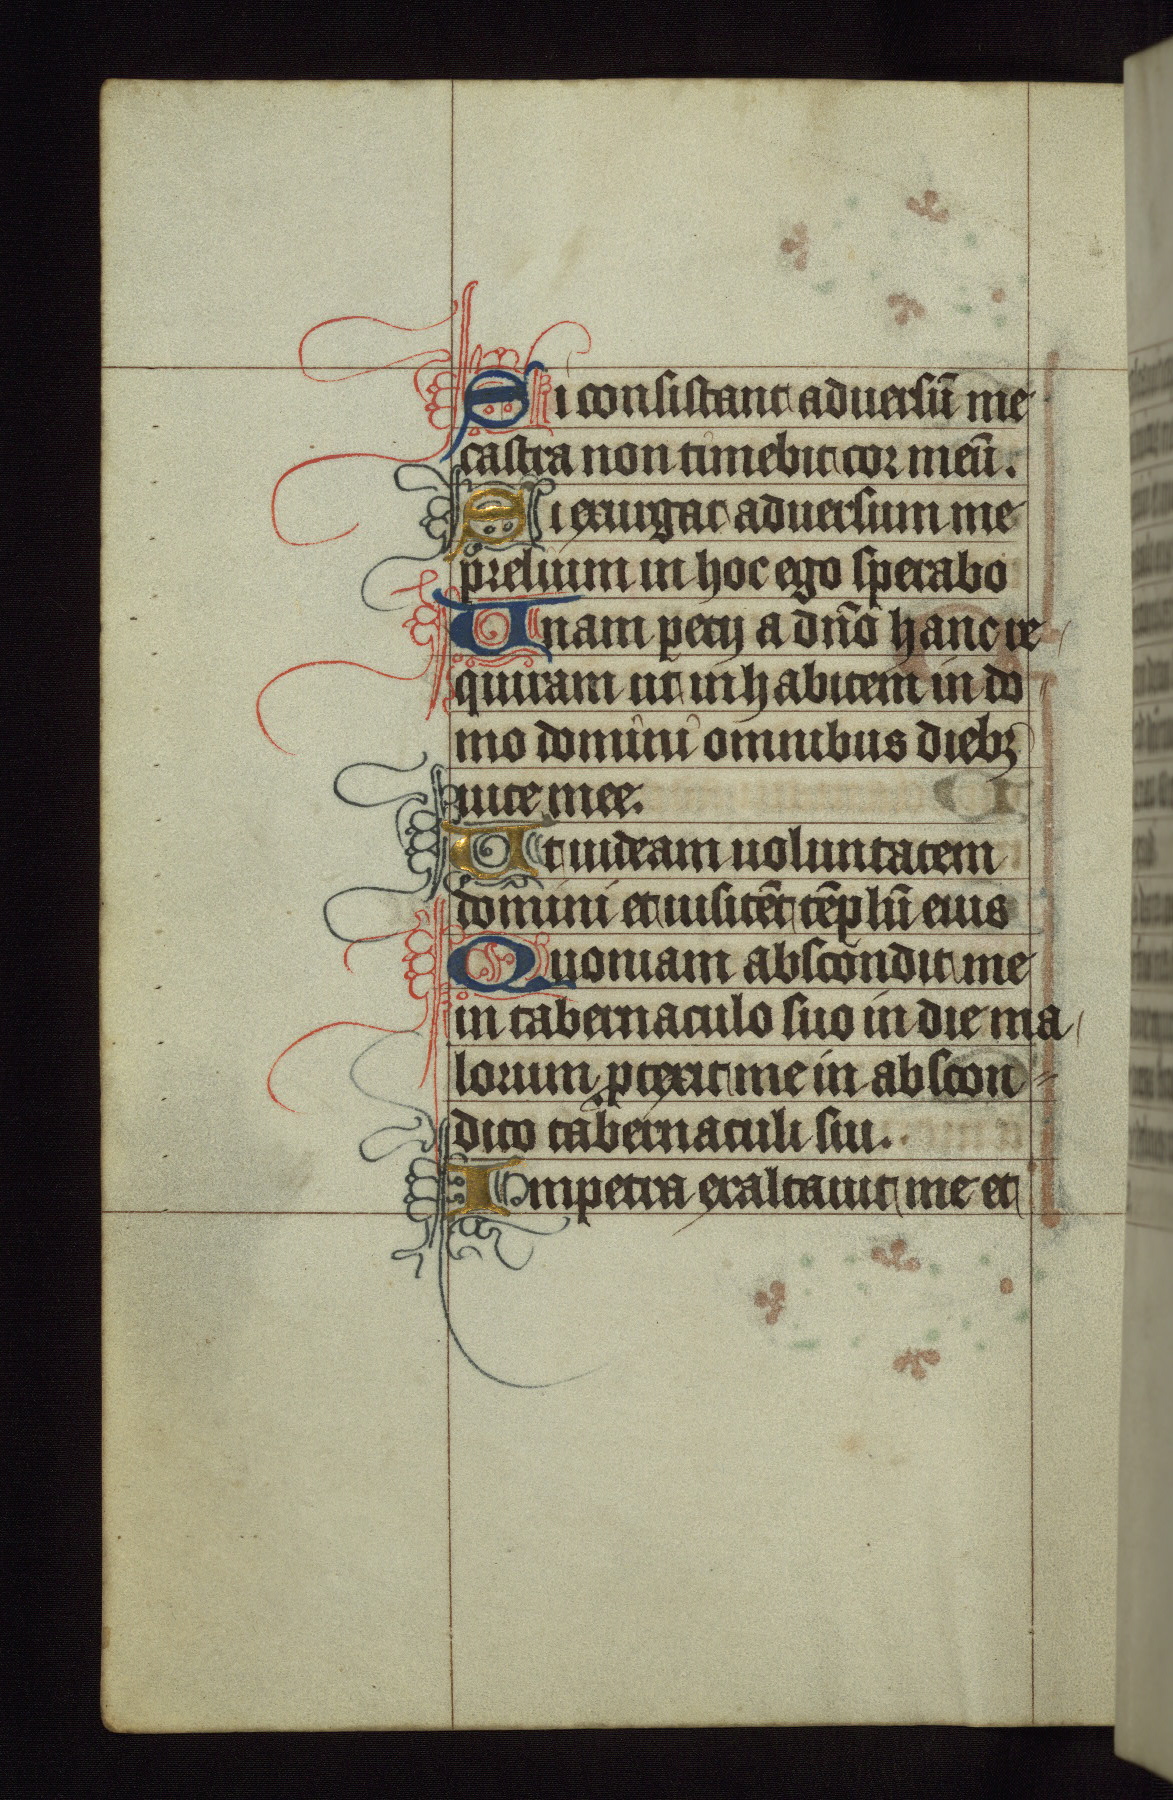 Si consistant aduersū me
castra non timebit cor meū.
Si exurgat aduersum me
prelium in hoc ego sperabo
Unam pecij a dn̄o hanc re
quiram ut inhabitem in do
mo domini omnibus diebꝫ
uite mee.
Ut uideam uoluntatem
domini et uisitēt tēplū eius
Quoniam abscondit me
in tabernaculo suo in die ma
lorum ꝓtexit me in abscon
dito tabernaculi sui.
In petra exaltauit me et